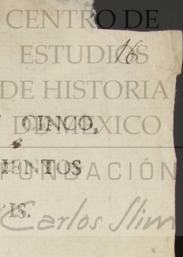 CENTRO DE
16
ESTUDIOS
DE HISTORIA
DE MÉXICO
CINCO,
IENTOS
FUNDACIÓN
IS.
Carlos Slim